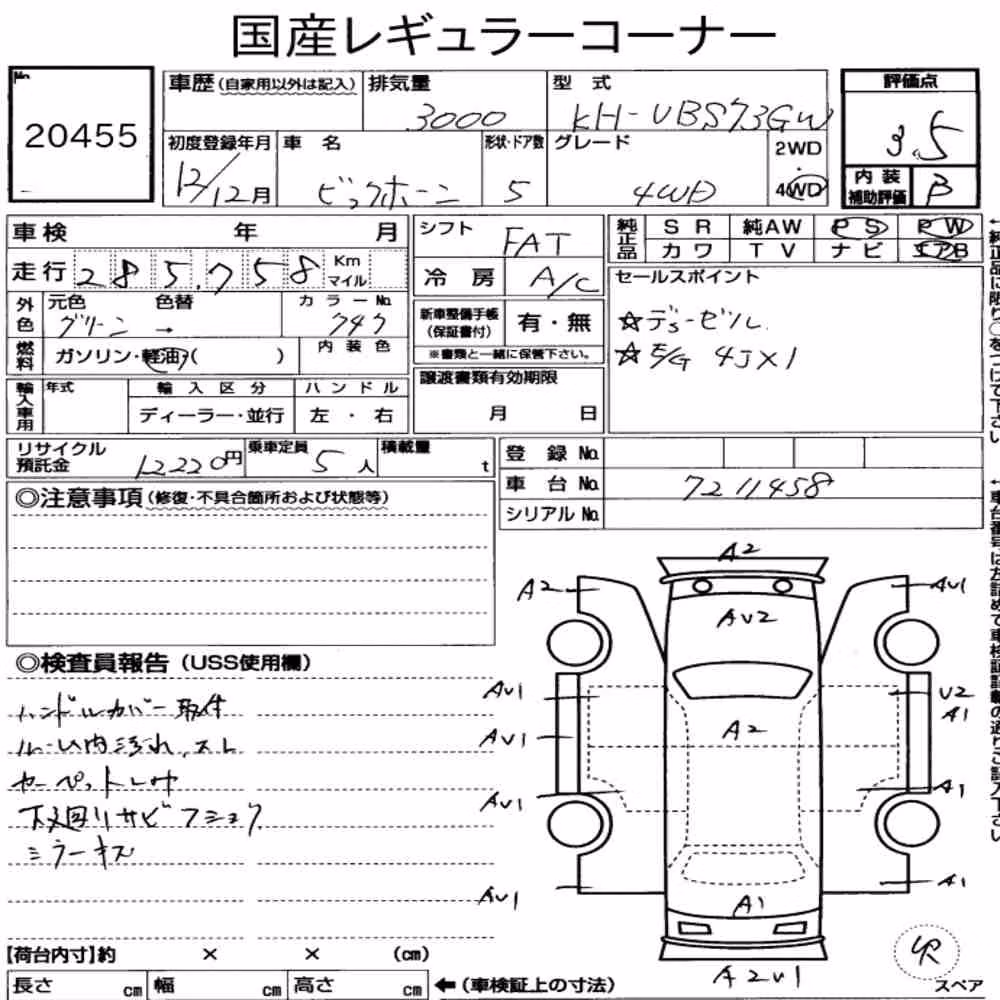 国産レギュラーコーナー
No. 20455
車歴(自家用以外は記入) 排気量 3000 型式 KH-UBS73GW 評価点 3.5
初度登録年月 12/12月 車名 ビックホーン 形状・ドア数 5 グレード 4WD 2WD・4WD 内装補助評価 B
車検 年 月 シフト FAT 純正品 SR 純AW PS PW
カワ TV ナビ エアB
走行 285,758 Km マイル 冷房 A/C セールスポイント
外色 元色 グリーン → 色替 カラーNo. 747 新車整備手帳(保証書付) 有・無 ☆ディーゼル
※書類と一緒に保管下さい。 ☆E/G 4JX1
燃料 ガソリン・軽油・( ) 内装色
譲渡書類有効期限 月 日
輸入車用 年式 輸入区分 ハンドル
ディーラー・並行 左・右
リサイクル預託金 12220円 乗車定員 5人 積載量 t 登録No.
車台No. 7211458
シリアルNo.
◎注意事項(修復・不具合箇所および状態等)
◎検査員報告(USS使用欄)
ハンドルカバー取付
ルーム内汚れ、スレ
カーペットし
下廻りサビ
ミラーキズ
A2
A2 AV1
AV2
AV1 U2
A1
AV1 A2
AV1 A1
AV1 A1
A1
A2V1
【荷台内寸】約 × × (cm)
長さ cm 幅 cm 高さ cm ←(車検証上の寸法) スペア
←純正品に限り○をつけて下さい
←車台番号は左詰めで車検証記載の通りご記入下さい